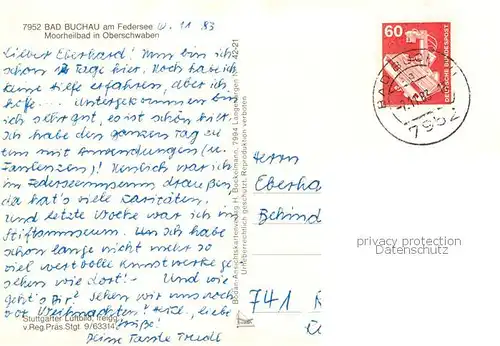 7952 BAD BUCHAU am Federsee
Moorheilbad in Oberschwaben
11 83
Lieber Eberhard! Nun bin ich
schon Tage hier. Noch habe ich
keine Hilfe erfahren, aber ich
hoffe... Untergekommen bin
ich sehr gut, es ist schön hier.
Ich habe den ganzen Tag zu
tun mit Anwendungen (u.
Faulenzen)! Neulich war ich
im Federseemuseum draußen
da hat's viele Raritäten.
Und letzte Woche war ich im
Stiftsmuseum. Dort habe
schon lange nicht mehr so
viel wertvolle Kunstwerke ge-
sehen wie dort! - Und wie
geht's Dir? Sehen wir uns noch
vor Weihnachten? Herzl., liebe
Grüße!
Deine Tante Treudl
Stuttgarter Luftbild, freigg.
v. Reg. Präs Stgt. 9/63314
Bodan-Ansichtskartenverlag H. Bockelmann, 7994 Langenargen 42-21
Urheberrechtlich geschützt. Reproduktion verboten
60
DEUTSCHE BUNDESPOST
BAD BUCHAU
11.83
7952
Herrn
Eberha
Behind
741 R
privacy protection
Datenschutz